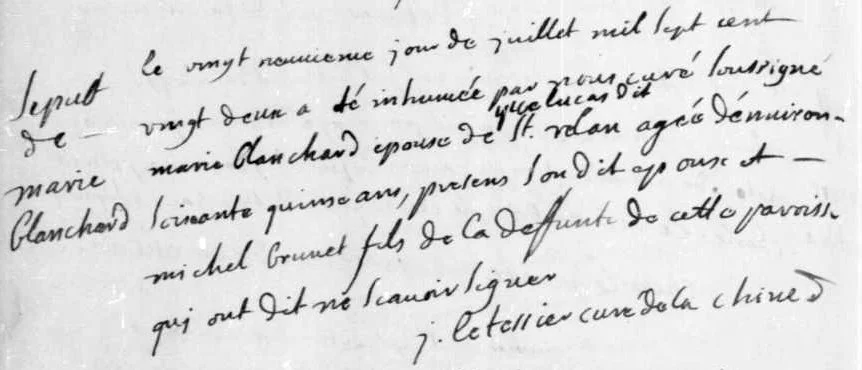 Sepult
de —
marie
blanchard
le vingt neuvieme jour de juillet mil sept cent
vingt deux a été inhumée par nous curé soussigné
yve lucas dit
marie blanchard epouse de St. relan agée dénviron-
soixante quinse ans, presens son dit epoux et —
michel brunet fils de la deffunte de cette paroisse
qui ont dit ne scavoir signer
j. letessier curé de la chine